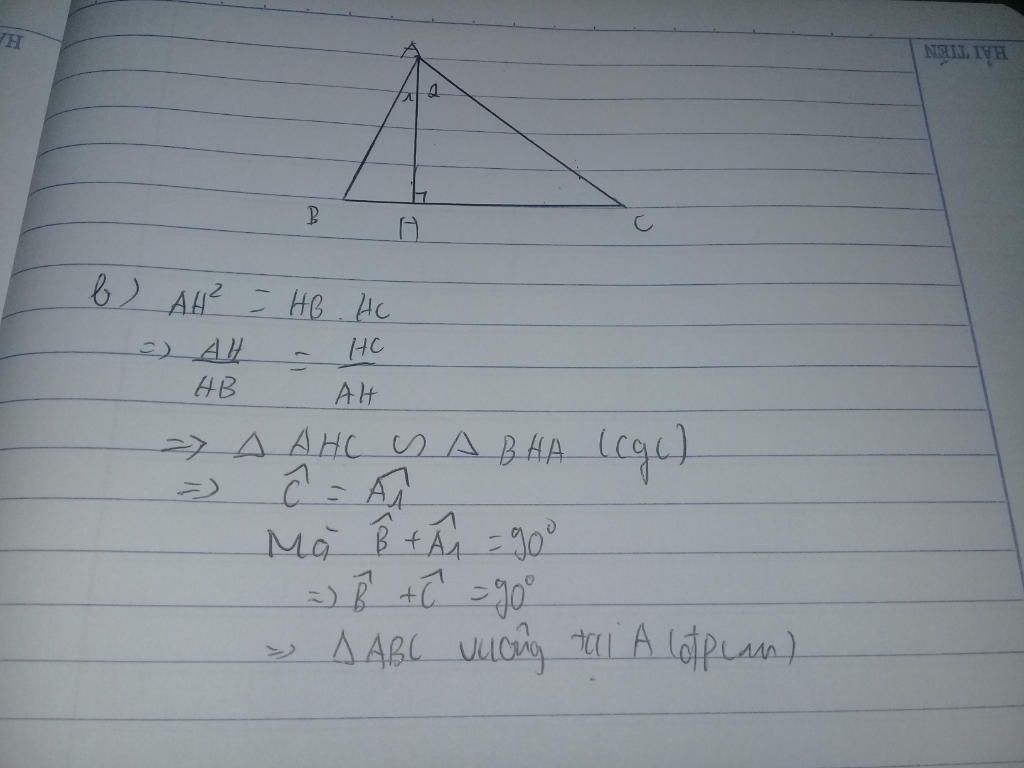 HẢI TIẾN
A
1 2
B H C
b) AH² = HB . HC
=> AH/HB = HC/AH
=> Δ AHC ∽ Δ BHA (cgc)
=> Ĉ = Â1
Mà B̂ + Â1 = 90°
=> B̂ + Ĉ = 90°
=> ΔABC vuông tại A (đpcm)